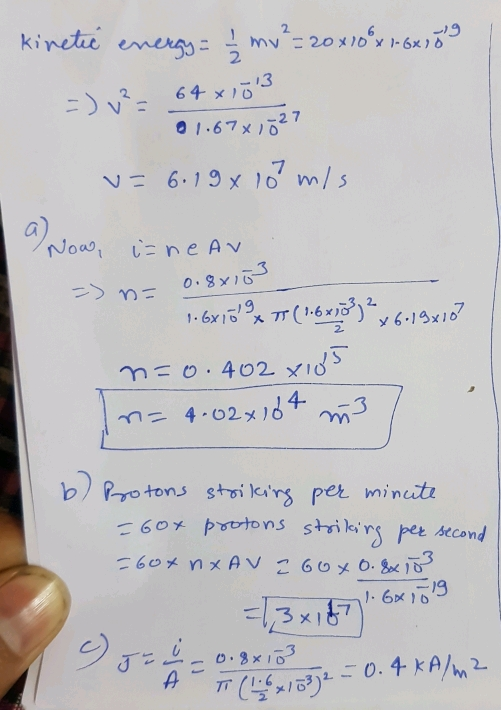 Kinetic energy = 1/2 mv² = 20x10⁶x1.6x10⁻¹⁹
=> v² = 64 x 10⁻¹³ / 1.67x10⁻²⁷
v = 6.19 x 10⁷ m/s
a) Now, i = neAv
=> n = 0.8x10⁻³ / 1.6x10⁻¹⁹ x π(1.6x10⁻³/2)² x 6.19x10⁷
n = 0.402 x10¹⁵
n = 4.02x10¹⁴ m⁻³
b) Protons striking per minute
= 60x protons striking per second
= 60x nxAV = 60x 0.8x10⁻³ / 1.6x10⁻¹⁹
= 3x10¹⁷
c) J = i/A = 0.8x10⁻³ / π(1.6/2 x10⁻³)² = 0.4 KA/m²